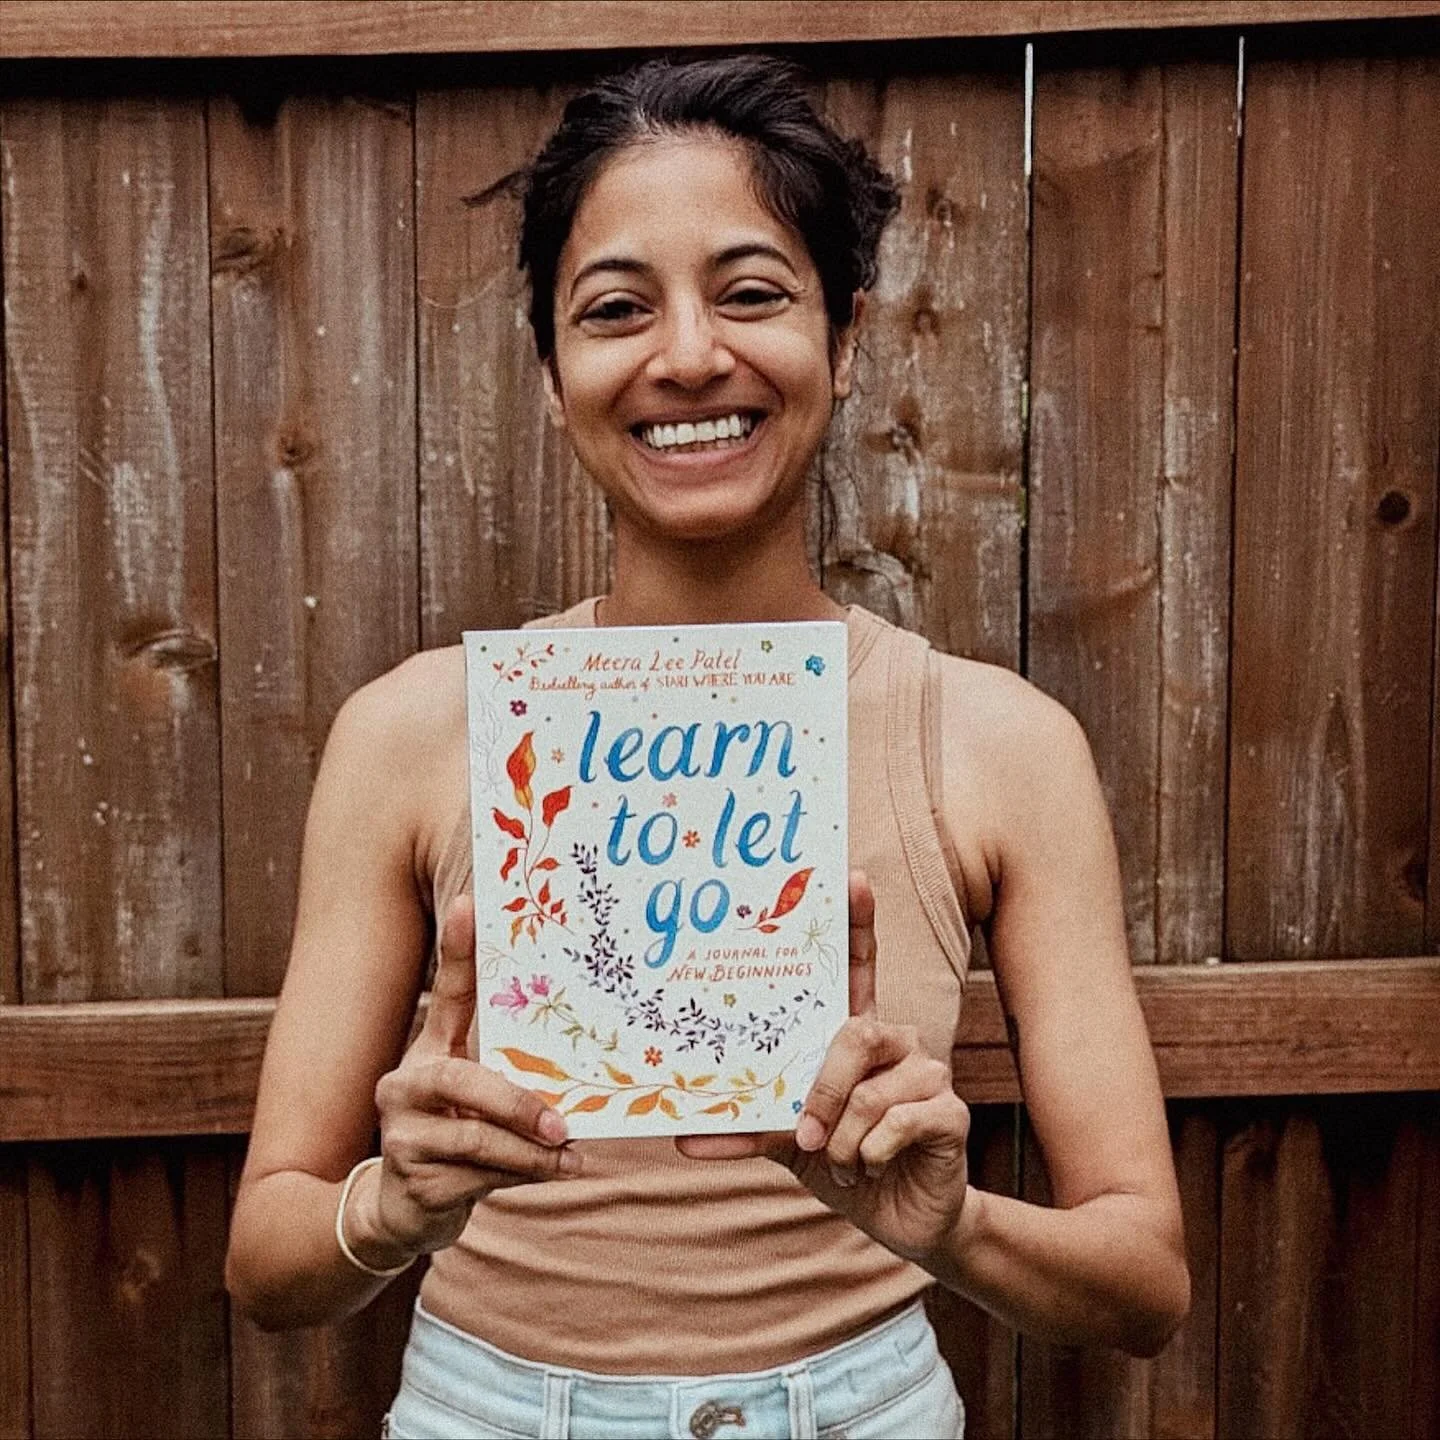 Meera Lee Patel
Bestselling author of START WHERE YOU ARE
learn
to let
go
A JOURNAL FOR
NEW BEGINNINGS